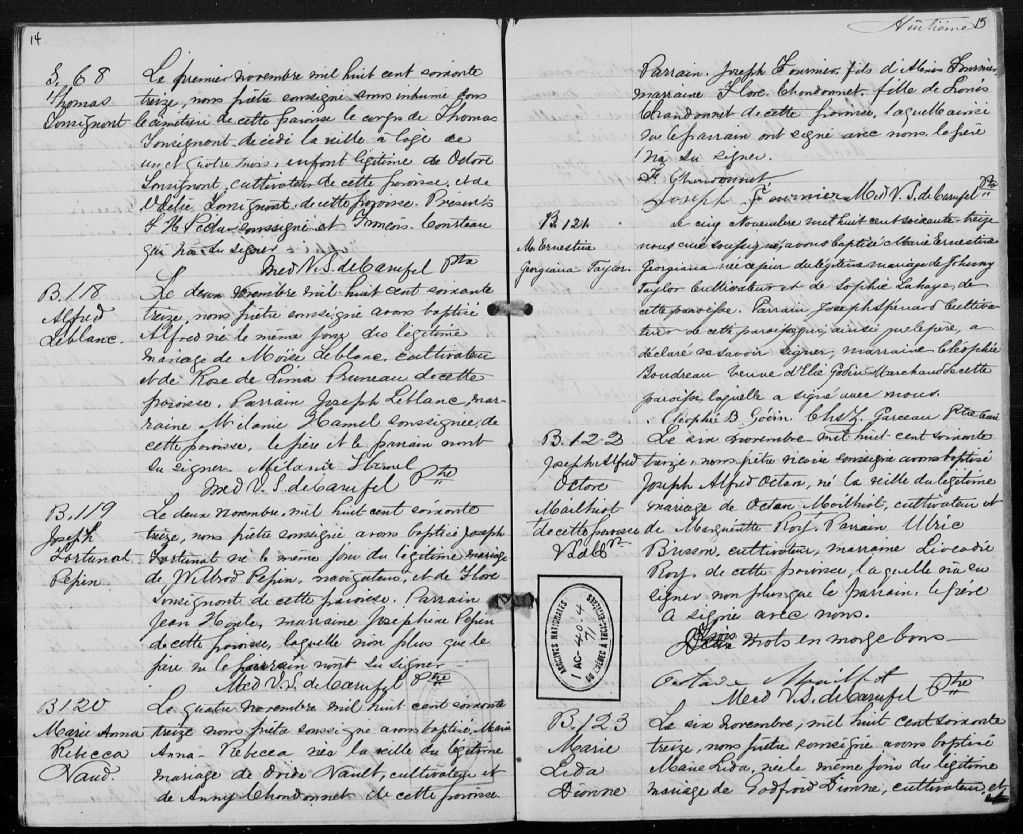 14
S. 68
Thomas
Tousignont
Le premier novembre mil huit cent soixonte
treize, nous prêtre soussigné avons inhumé dans
le cimetière de cette paroisse le corps de Thomas
Tousignont décédé la veille à l'age de
un et quatre mois, enfont légitime de Octave
Tousignont, cultivateur de cette paroisse, et de
Tousignont de cette paroisse. Presents
soussigné et François
qui n'a su signer
Med V. S. de Carufel Ptre
B. 118
Alfred
Leblanc.
Le deux novembre mil huit cent soixonte
treize, nous prêtre soussigné avons baptisé
Alfred né le même jour du légitime
mariage de Moïse Leblanc, cultivateur
et de Rose de Lima Pruneau de cette
paroisse. Parrain Joseph Leblanc, mar-
raine Mélanie Hamel soussignée, de
cette paroisse, le père et le parrain n'ont
su signer. Mélanie Hamel
Med V. S. de Carufel Ptre
B. 119
Joseph
Fortunat
Pepin
Le deux novembre, mil huit cent soixonte
treize, nous prêtre soussigné avons baptisé Joseph
Fortunat né le même jour du légitime mariage
de Wilbrod Pepin, navigateur, et de Flore
Tousignonte de cette paroisse. Parrain
Jean Houle, marraine Josephine Pepin
de cette paroisse, laquelle non plus que le
père ni le parrain n'ont su signer
Med V. S. de Carufel Ptre
B 120
Marie Anna
Rébecca
Naud.
Le quatre novembre mil huit cent soixonte
treize nous prêtre soussigné avons baptisé, Marie
Anna Rébecca née la veille du légitime
mariage de Vault, cultivateur et
de Anny Chondonnet de cette paroisse
15
Huitième
Parrain Joseph Fournier, fils d'Alexis Fournier,
marraine Flore Chondonnet, fille de Louis
Chandonnet de cette paroisse, laquelle ainsi
que le parrain ont signé avec nous, le père
n'a su signer.
F Chondonnet
Joseph Fournier Med V. S. de Carufel Ptre
B. 121
M. Ernestine
Georgiana Taylor.
Le cinq Novembre mil huit cent soixante-treize
nous curé soussigné, avons baptisé Marie Ernestine
Georgiana née ce jour du légitime mariage de Johnny
Taylor Cultivateur et de Sophie Lahaye, de
cette paroisse. Parrain, Joseph Spénard Cultiva-
teur de cette paroisse qui, ainsi que le père, a
déclaré ne savoir signer, marraine Cléophie
Boudreau veuve d'Elie Godin Marchand de cette
paroisse laquelle a signé avec nous.
Cléophie B. Godin Chs Z. Garceau Ptre Curé
B. 122
Joseph Alfred
Octave
Mailhiot
de cette paroisse
Le six novembre mil huit cent soixonte
treize, nous prêtre vicaire soussigné avons baptisé
Joseph Alfred Octave, né la veille du légitime
mariage de Octave Mailhiot, cultivateur et
de Marguerite Roy. Parrain Ulric
Brisson, cultivateur, marraine Léocadie
Roy, de cette paroisse, laquelle n'a su
signer non plus que le parrain, le père
a signé avec nous.
mots en marge bons
Octave Mailhot
Med V. S. de Carufel Ptre
ARCHIVES NATIONALES
AC-40-4
/71
DU QUÉBEC À TROIS-RIVIÈRES
B. 123
Marie
Lida
Dionne
Le six novembre, mil huit cent soixonte
treize, nous prêtre soussigné avons baptisé
Marie Lida, née le même jour du légitime
mariage de Godfroid Dionne, cultivateur, et